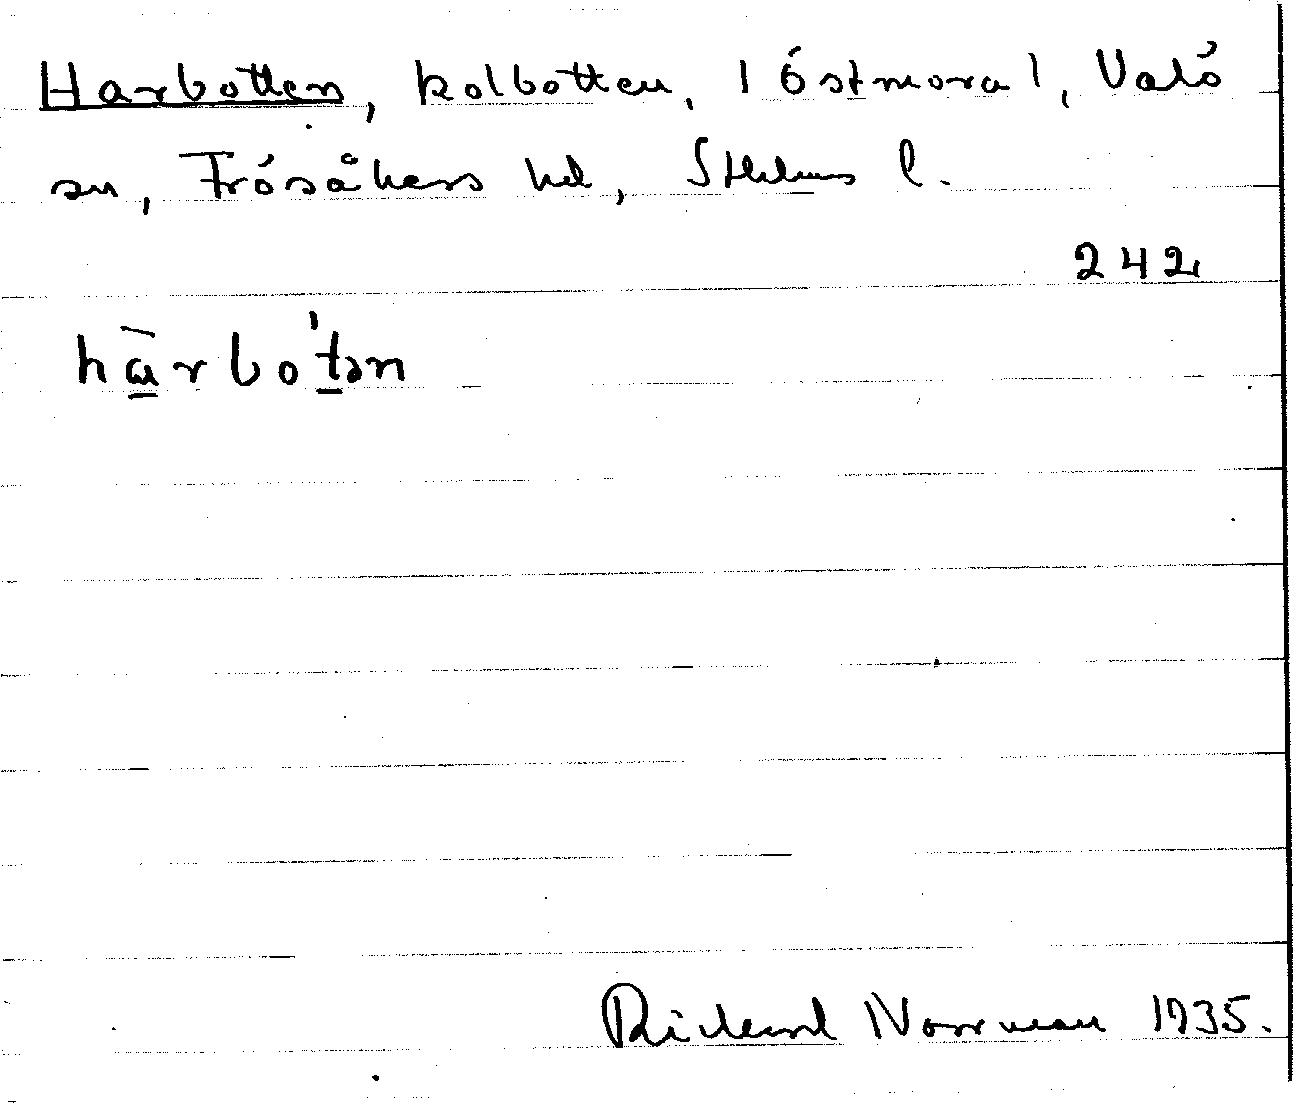 Harbotten, kolbotten, (Östmora), Valö
sn, Frösåkers hd, Sthlms l.
242
hārbo'tən
Rickard Norrman 1935.